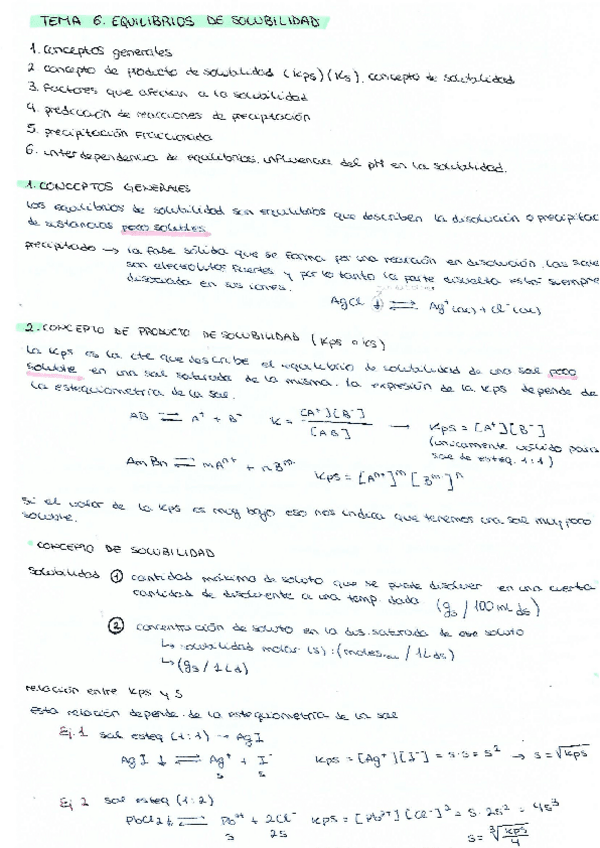 TEMA 6. EQUILIBRIOS DE SOLUBILIDAD
1. conceptos generales
2. concepto de producto de solubilidad (Kps) (Ks), concepto de solubilidad
3. Factores que afectan a la solubilidad
4. predicción de reacciones de precipitación
5. precipitación Fraccionada
6. interdependencia de equilibrios, influencia del pH en la solubilidad.
1. CONCEPTOS GENERALES
los equilibrios de solubilidad son equilibrios que describen la disolución o precipitac
de sustancias poco solubles
precipitado → la fase sólida que se forma por una reacción en disolución. Las sale
son electrolitos fuertes y por lo tanto la parte disuelta está siempre
disociada en sus iones.
AgCl ↓ ⇌ Ag⁺(ac) + Cl⁻(ac)
2. CONCEPTO DE PRODUCTO DE SOLUBILIDAD (Kps o Ks)
La Kps es la cte que describe el equilibrio de solubilidad de una sal poco
soluble en una sal saturada de la misma. la expresión de la Kps depende de
la estequiometría de la sal.
AB ⇌ A⁺ + B⁻ K = [A⁺][B⁻] / [AB] → Kps = [A⁺][B⁻]
(únicamente válido para
sal de esteq. 1:1)
AmBn ⇌ mAⁿ⁺ + nBᵐ⁻ Kps = [Aⁿ⁺]ᵐ [Bᵐ⁻]ⁿ
Si el valor de la Kps es muy bajo eso nos indica que tenemos una sal muy poco
soluble.
CONCEPTO DE SOLUBILIDAD
Solubilidad ① cantidad máxima de soluto que se puede disolver en una cierta
cantidad de disolvente a una temp. dada (gs / 100 mL ds)
② concentración de soluto en la dis. saturada de ese soluto
↳ solubilidad molar (s): (moles / 1L ds)
↳ (gs / 1Ld)
relación entre Kps y S
Esta relación depende de la estequiometría de la sal
Ej. 1 sal esteq (1:1) → AgI
AgI ↓ ⇌ Ag⁺ + I⁻ Kps = [Ag⁺][I⁻] = s·s = s² → s = √Kps
s s
Ej 2 sal esteq (1:2)
PbCl2 ↓ ⇌ Pb²⁺ + 2Cl⁻ Kps = [Pb²⁺][Cl⁻]² = s·2s² = 4s³
s 2s s = ∛(Kps/4)